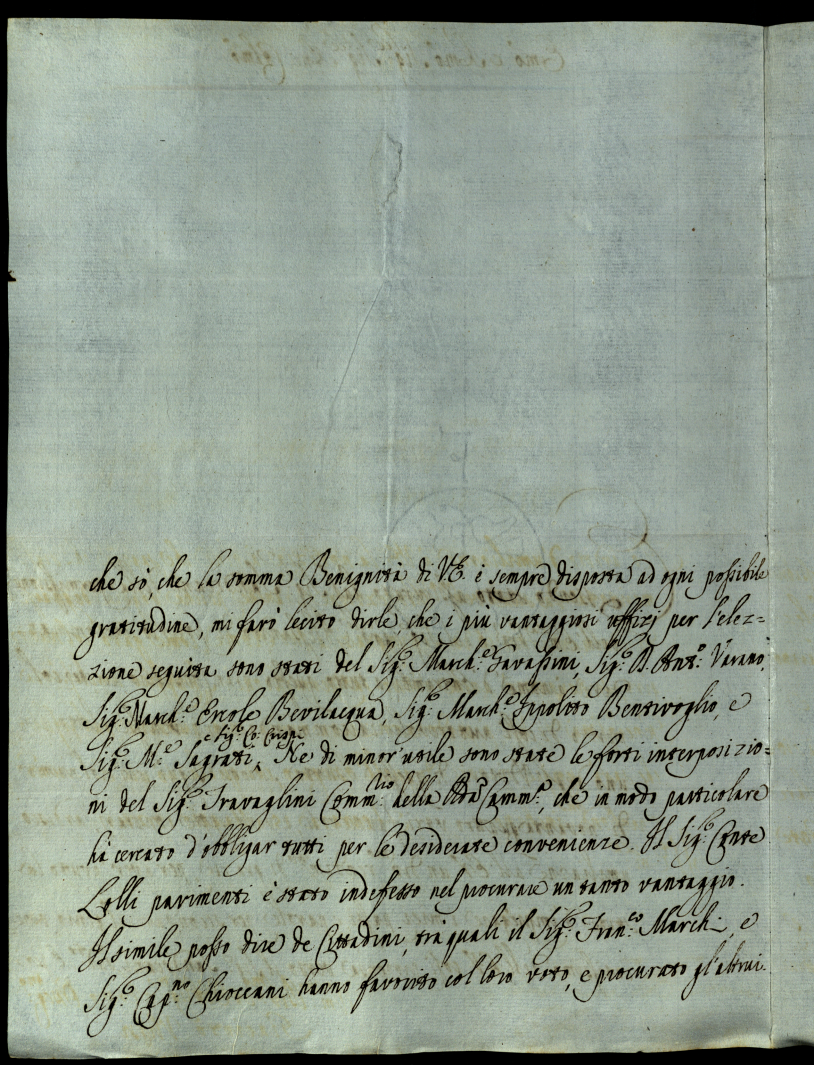 che sò, che la somma Benignità di V.E. è sempre disposta ad ogni possibile
gratitudine, mi farò lecito dirle, che i più vantaggiosi uffizj per l'elez=
zione seguita sono stati del Sig.e March.e Gavassini, Sig.e D. Ant.o Varano,
Sig.e March.e Ercole Bevilacqua, Sig.e March.e Ippolito Bentivoglio, e
e Sig.e Co: Crispi
Sig.e M.e Sagrati, Ne di minor'utile sono state le forti interposizio=
ni del Sig.e Travaglini Comm.rio della Camm.a, che in modo particolare
hà cercato d'obbligar tutti per le desiderate convenienze. Il Sig.e Conte
Lolli parimenti è stato indefesso nel procurare un tanto vantaggio.
Il simile posso dire de Cittadini, trà quali il Sig.e Fran.co Marchi, e
Sig.e Cap.no Chioccani hanno favorito col loro voto, e procurato gl'altrui.